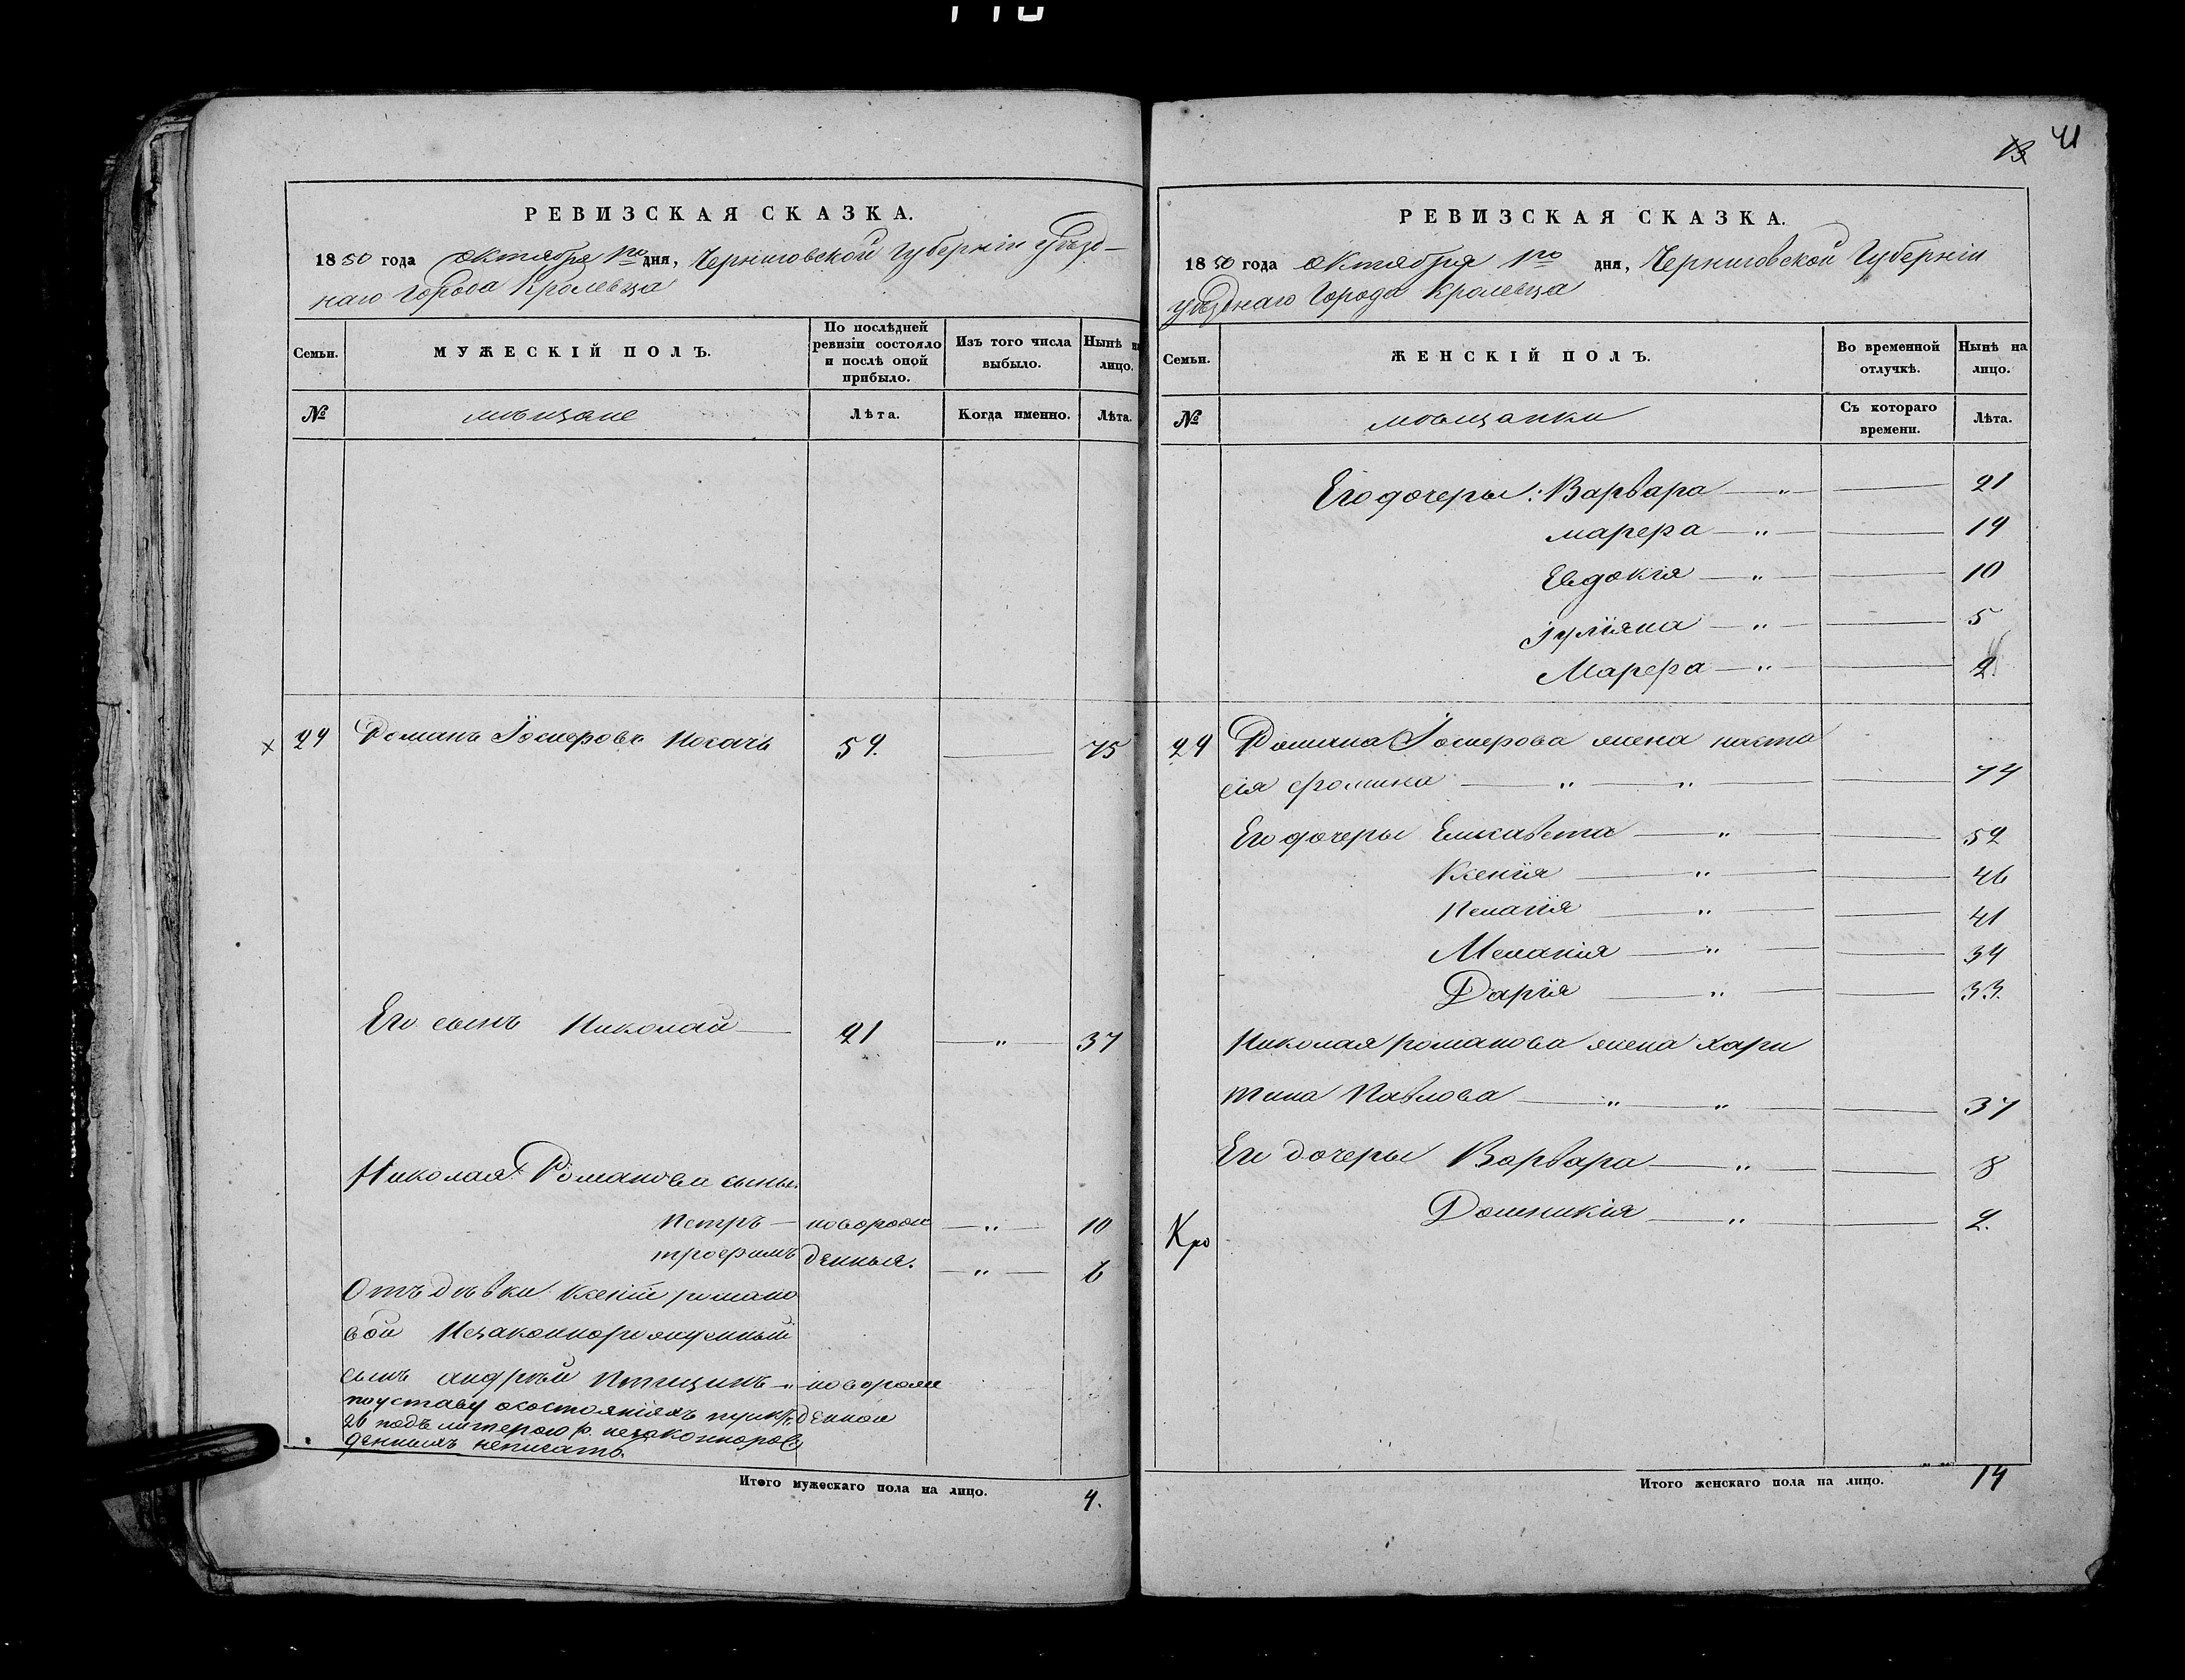 41
13
РЕВИЗСКАЯ СКАЗКА.
1850 года октября 1го дня, Черниговской Губерніи уѣзд-
наго Города Кролевца
Семьи.
МУЖЕСКІЙ ПОЛЪ.
По послѣдней ревизіи состояло и послѣ оной прибыло.
Изъ того числа выбыло.
Нынѣ на лицо.
№
мѣщане
Лѣта.
Когда именно.
Лѣта.
29 Романъ Іосифовъ Носачь 59. 75
Его сынъ Николай 21 „ 37
Николая Романова сыны.
Петръ новорож „ 10
трофимъ денныя. „ 6
Отъ дѣвки Ксеніи романо
вой Незаконнорожденный
сынъ андрѣй Птицинъ „ новорож
по уставу о состояніяхъ пункт денной
26 подъ литерою р. незаконорож
денныхъ неписать.
Итого мужескаго пола на лицо. 4.
РЕВИЗСКАЯ СКАЗКА.
1850 года октября 1го дня, Черниговской Губерніи
уѣзднаго Города Кролевца
Семьи.
ЖЕНСКІЙ ПОЛЪ.
Во временной отлучкѣ.
Нынѣ на лицо.
№
мѣщанки
Съ котораго времени.
Лѣта.
Его дочеры: Варвара „ 21
марфа „ 19
Евдокія „ 10
Іуліяна „ 5
Марфа „ 2.
29 Романа Іосифова жена наста
сія фомина „ „ 74
Его дочеры Елисавета „ 52
Ксенія „ 46
Пелагія „ 41
Меланія „ 34
Дарія „ 33.
Николая романова жена хари
тина Павлова „ „ 37
Его дочеры Варвара „ 8
Домникія „ 2.
Кро
Итого женскаго пола на лицо. 14